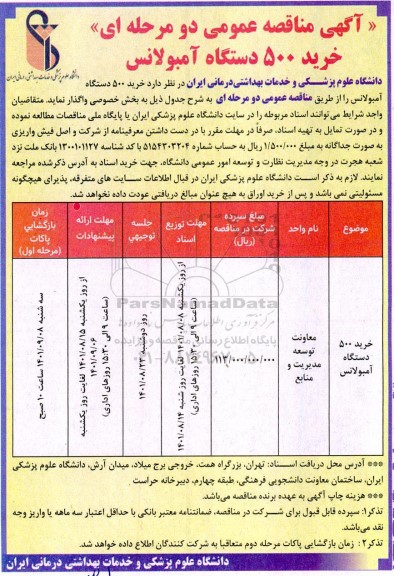 « آگهی مناقصه عمومی دو مرحله ای»
خرید ۵۰۰ دستگاه آمبولانس
دانشگاه علوم پزشکی و خدمات بهداشتی درمانی ایران
دانشگاه علوم پزشکی و خدمات بهداشتی درمانی ایران در نظر دارد خرید ۵۰۰ دستگاه
آمبولانس را از طریق مناقصه عمومی دو مرحله ای به شرح جدول ذیل به بخش خصوصی واگذار نماید. متقاضیان
واجد شرایط می‌توانند اسناد مربوطه را در سایت دانشگاه علوم پزشکی ایران یا پایگاه ملی مناقصات مطالعه نموده
و در صورت تمایل به تهیه اسناد، صرفاً در مهلت مقرر با در دست داشتن معرفینامه از شرکت و اصل فیش واریزی
به صورت جداگانه به مبلغ ۱/۵۰۰/۰۰۰ ریال به حساب شماره ۵۱۵۴۳۰۳۲۰۴ با کد شناسه ۱۳۰۰۱۰۱۱۲۷ بانک ملت نزد
شعبه هجرت در وجه مدیریت نظارت و توسعه امور عمومی دانشگاه، جهت خرید اسناد به آدرس ذکرشده مراجعه
نمایند. لازم به ذکر است دانشگاه علوم پزشکی ایران در قبال اطلاعات سایت های متفرقه، پذیرای هیچگونه
مسئولیتی نمی باشد و پس از خرید اوراق به هیچ عنوان مبالغ دریافتی عودت داده نخواهد شد.
موضوع
نام واحد
مبلغ سپرده شرکت در مناقصه (ریال)
مهلت توزیع اسناد
جلسه توجیهی
مهلت ارائه پیشنهادات
زمان بازگشایی پاکات (مرحله اول)
خرید ۵۰۰ دستگاه آمبولانس
معاونت توسعه مدیریت و منابع
از روز یکشنبه ۱۴۰۱/۰۸/۰۸ لغایت روز شنبه ۱۴۰۱/۰۸/۱۴
(ساعت ۹ الی ۱۵:۳۰ روزهای اداری)
روز دوشنبه ۱۴۰۱/۰۸/۲۳
از روز یکشنبه ۱۴۰۱/۰۸/۱۵ لغایت روز یکشنبه ۱۴۰۱/۰۹/۰۶
(ساعت ۹ الی ۱۵:۳۰ روزهای اداری)
سه شنبه ۱۴۰۱/۰۹/۰۸ ساعت ۱۰ صبح
ParsNamadData
*** آدرس محل دریافت اسناد: تهران، بزرگراه همت، خروجی برج میلاد، میدان آرش، دانشگاه علوم پزشکی
ایران، ساختمان معاونت دانشجویی فرهنگی، طبقه چهارم، دبیرخانه حراست
*** هزینه چاپ آگهی به عهده برنده مناقصه می‌باشد.
تذکر۱: سپرده قابل قبول برای شرکت در مناقصه، ضمانتنامه معتبر بانکی با حداقل اعتبار سه ماهه یا واریز وجه
نقد می‌باشد.
تذکر۲: زمان بازگشایی پاکات مرحله دوم متعاقبا به شرکت کنندگان اطلاع داده خواهد شد.
دانشگاه علوم پزشکی و خدمات بهداشتی درمانی ایران